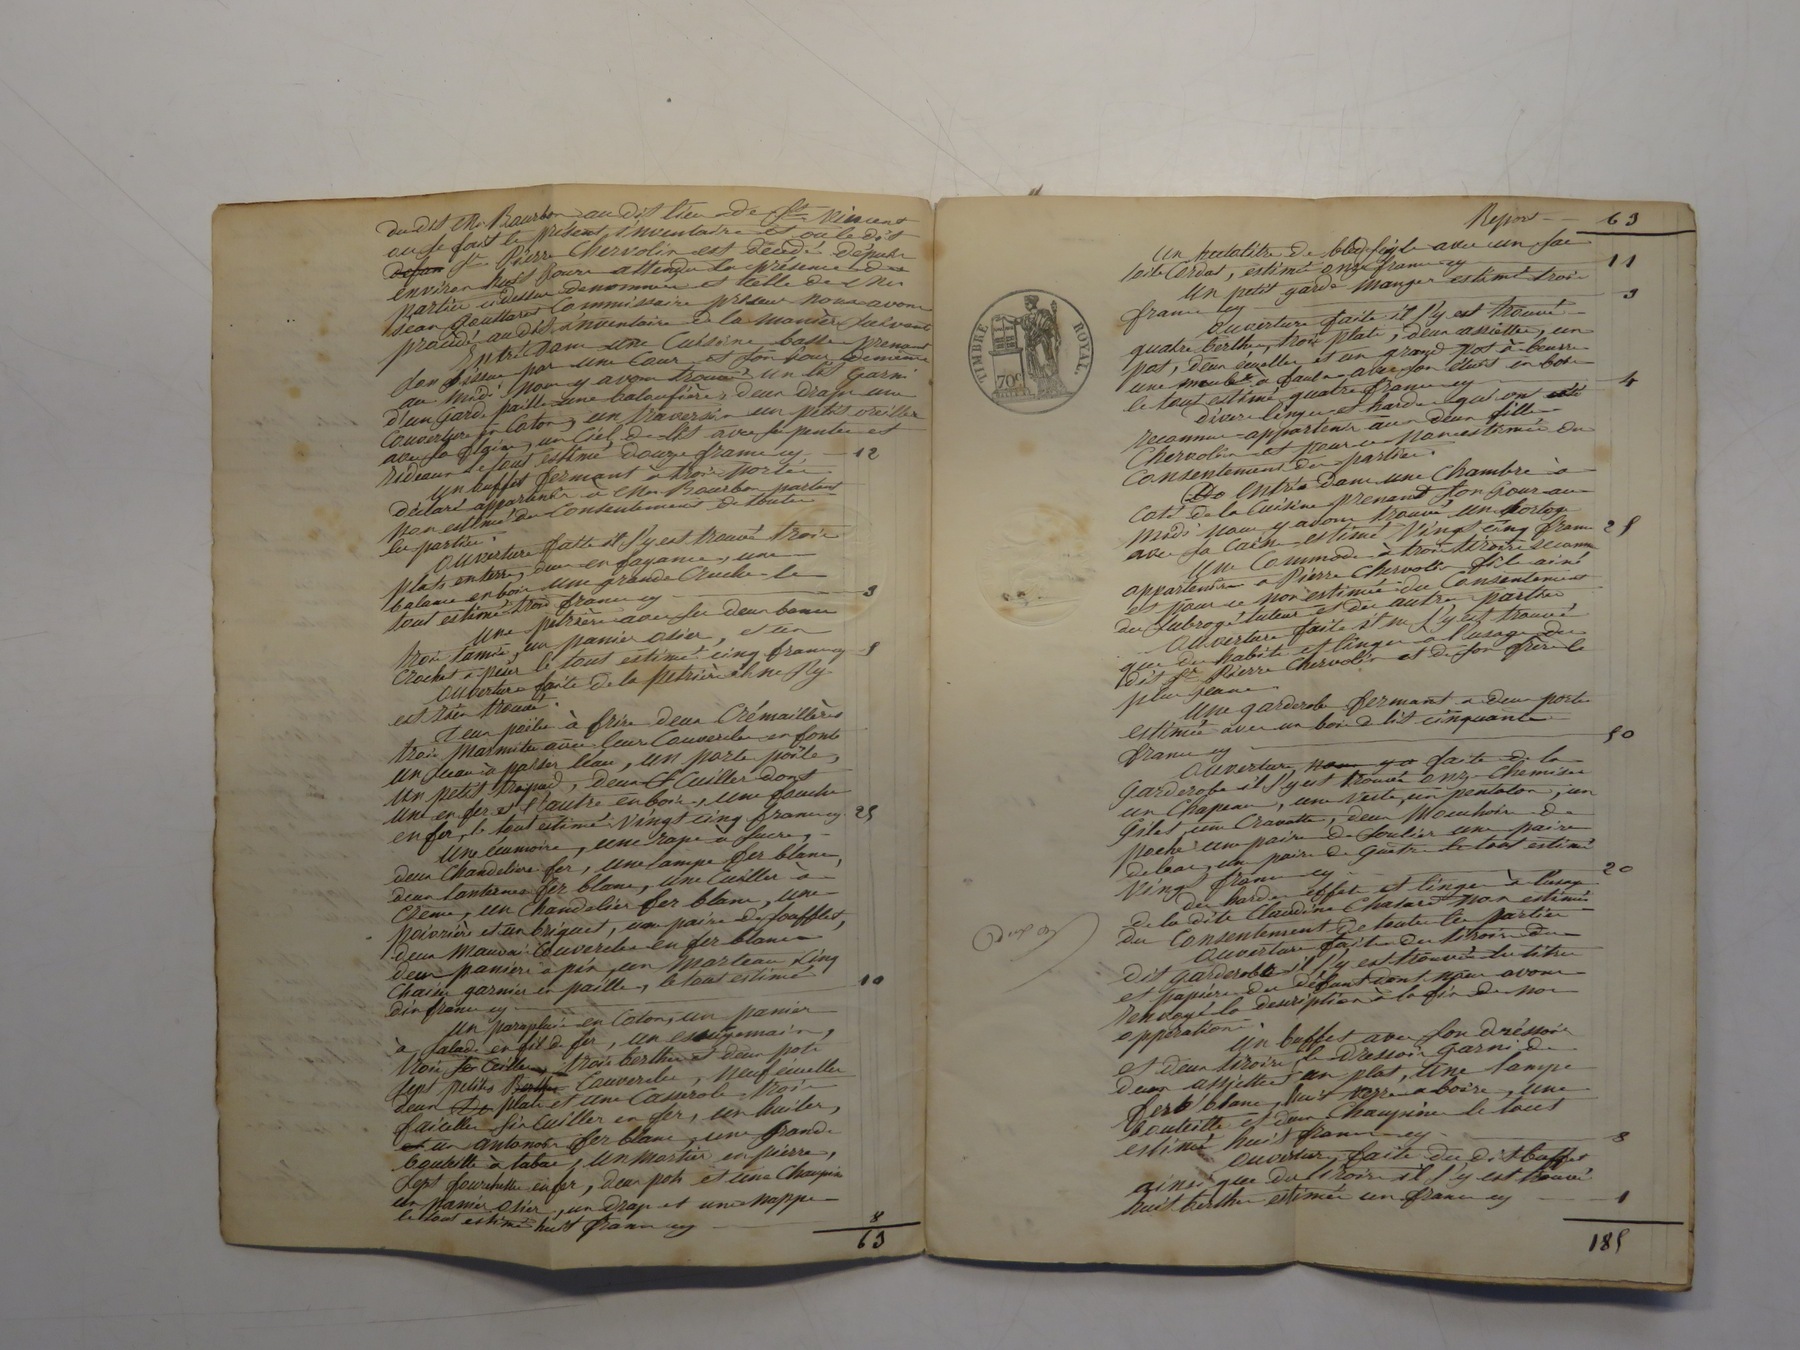 du dit Mr Bourbon au dit lieu de St Vincent
ou se fait le présent inventaire et ou le dit
St Pierre Chervolin est décédé depuis
environ huit jours attendu la présence des
parties ci dessus denommées et celle de Mr
jean Commissaire priseur nous avons
procédé au dit inventaire de la manière suivante
Entré dans une Cuisine basse prenant
son issue par une Cour et son jour
au midi nous y avons trouvé un lit garni
d'un garde paille une baloufière, deux draps une
Couverture en Coton, un traversin un petit oreiller
avec sa , un Ciel de lit avec ses pentes et
rideaux le tout estimé douze francs cy 12
un buffet fermant à trois portes
déclaré appartenir à Mr Bourbon partant
non estimé du Consentement de toutes
les parties.
Ouverture faite il s'y est trouvé trois
plats en terre, deux en fayance, une
balance en bois une grande Cruche le
tout estimé trois francs cy 3
Une pétrière avec ses deux bancs
trois tamis, un panier osier, et un
Crochet à peser le tout estimé cinq francs cy 5
Ouverture faite de la pétrière il ne s'y
est rien trouvé.
Deux poêles à frire deux Crémaillères
trois Marmites avec leurs Couvercles en fonte
un seau à passer l'eau, un porte poêle,
Un petit trépied, deux Cuiller dont
une en fer et l'autre en bois, une fouche
en fer, le tout estimé vingt cinq francs cy 25
Une écumoire, une rape à sucre,
deux Chandeliers fer, une lampe fer blanc,
deux lanternes fer blanc, une Cuiller à
Crême, un Chandelier fer blanc, une
poivrière et un briquet, une paire de soufflet,
deux Mauvais Couvercles en fer blanc
deux paniers à pain, un Marteau Cinq
Chaises garnies en paille, le tout estimé
dix francs cy 10
Un parapluie en Coton, un panier
à salade en fil de fer, un essuyemain,
trois , trois berthes et deux pots
sept petits Couvercles, neuf écuelles
deux plats et une Casserole trois
faicelles six Cuiller en fer, un huilier,
un antonoir fer blanc, une grande
bouteille à tabac, Un mortier en pierre,
Sept fourchettes en fer, deux pots et une Chaupine
un panier osier, un drap et une nappe
le tout estimé huit francs cy 8
63
Report 63
Un hectolitre de bled seigle avec un sac
toile Cordat, estimé onze francs cy 11
Un petit garde manger estimé trois
francs cy 3
Ouverture faite il s'y est trouvé
quatre berthes, trois plats, deux assiettes, un
pot, deux écuelles et un grand pot à beurre
une à faulx avec son étuis en bois
le tout estimé quatre francs cy 4
Divers linges et hardes qui ont été
reconnus appartenir aux deux filles
Chervolin et pour ce non estimés du
Consentement des parties.
Entrés dans une Chambre à
Coté de la Cuisine prenant son jour au
midi nous y avons trouvé un horloge
avec sa Caisse estimé Vingt cinq francs 25
Une Commode à trois tiroirs reconnue
appartenir à Pierre Chervolin fils ainé
et pour ce non estimée du Consentement
du Subrogé tuteur et des autres parties
Ouverture faite il ne s'y est trouvé
que des habits et linges à l'usage du
dit Sr Pierre Chervolin et de son frère le
plus jeune.
Une garderobe fermant à deux portes
estimée avec un bois de lit cinquante
francs cy 50
Ouverture faite de la
Garderobe il s'y est trouvé onze Chemises
un Chapeau, une Veste, un pentalon, un
Gilet, une Cravatte, deux Mouchoirs de
poche une paire de soulier une paire
de bas, un paire de Guêtre le tout estimé
vingt francs cy 20
Des hardes effets et linges à l'usage
de la dite Claudine Chasard non estimés
du Consentement de toutes les parties
Ouverture faite du tiroir du
dit garderobe il s'y est trouvé les titres
et papiers du défunt dont nous avons
renvoyé la description à la fin de nos
opperations.
Un buffet avec son dréssoir
et deux tiroirs le dressoir garni de
deux assiettes un plat, une lampe
fer blanc, huit verres à boire, une
bouteille et deux Chaupines le tout
estimé huit francs cy 8
Ouverture faite du dit buffet
ainsi que des tiroirs il s'y est trouvé
huit berthes estimées un franc cy 1
185
TIMBRE ROYAL
70c